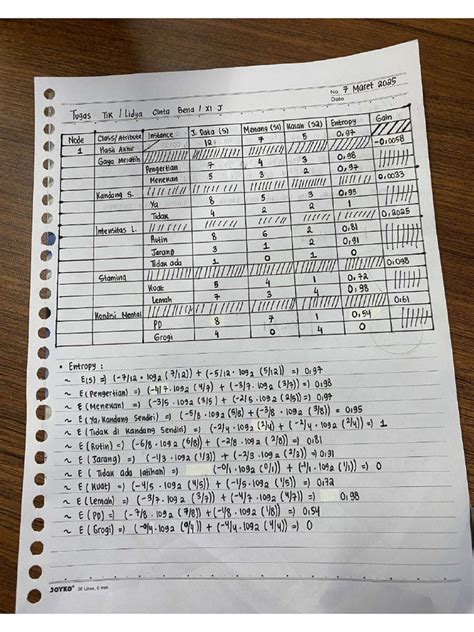 No 7 Maret 2025
Date
Tugas TIK / Lidya Cinta Bena / XI J
Node Class/Atribute Instance J. Data (S) Menang (S1) Kalah (S2) Entropy Gain
1 Hasil Akhir 12 7 5 0,97
Gaya Melatih -0,0058
Pengertian 7 4 3 0,98
Menekan 5 3 2 0,97
Kandang S. 0,0033
Ya 8 5 3 0,95
Tidak 4 2 2 1
Intensitas L. 0,2025
Rutin 8 6 2 0,81
Jarang 3 1 2 0,91
Tidak ada 1 0 1 0
Stamina 0,098
Kuat 5 4 1 0,72
Lemah 7 3 4 0,98
Kondisi Mental 0,61
PD 8 7 1 0,54
Grogi 4 0 4 0
• Entropy :
~ E(S) => (-7/12 · log2 (7/12)) + (-5/12 · log2 (5/12)) => 0,97
~ E (Pengertian) => (-4/7 · log2 (4/7) + (-3/7 · log2 (3/7)) => 0,98
~ E (Menekan) => (-3/5 · log2 (3/5) + (-2/5 · log2 (2/5)) => 0,97
~ E (Ya, Kandang Sendiri) => (-5/8 · log2 (5/8) + (-3/8 · log2 (3/8)) => 0,95
~ E (Tidak di Kandang Sendiri) => (-2/4 · log2 (2/4) + (-2/4 · log2 (2/4)) => 1
~ E (Rutin) => (-6/8 · log2 (6/8)) + (-2/8 · log2 (2/8)) => 0,81
~ E (Jarang) => (-1/3 · log2 (1/3)) + (-2/3 · log2 (2/3)) => 0,91
~ E ( Tidak Ada latihan) => (-0/1 · log2 (0/1)) + (-1/1 · log2 (1/1)) => 0
~ E (Kuat) => (-4/5 · log2 (4/5)) + (-1/5 · log2 (1/5)) => 0,72
~ E (Lemah) => (-3/7 · log2 (3/7)) + (-4/7 · log2 (4/7)) => 0,98
~ E (PD) => (-7/8 · log2 (7/8)) + (-1/8 · log2 (1/8)) => 0,54
~ E (Grogi) => (-0/4 · log2 (0/4)) + (-4/4 · log2 (4/4)) => 0
JOYKO 36 Lines, 6 mm